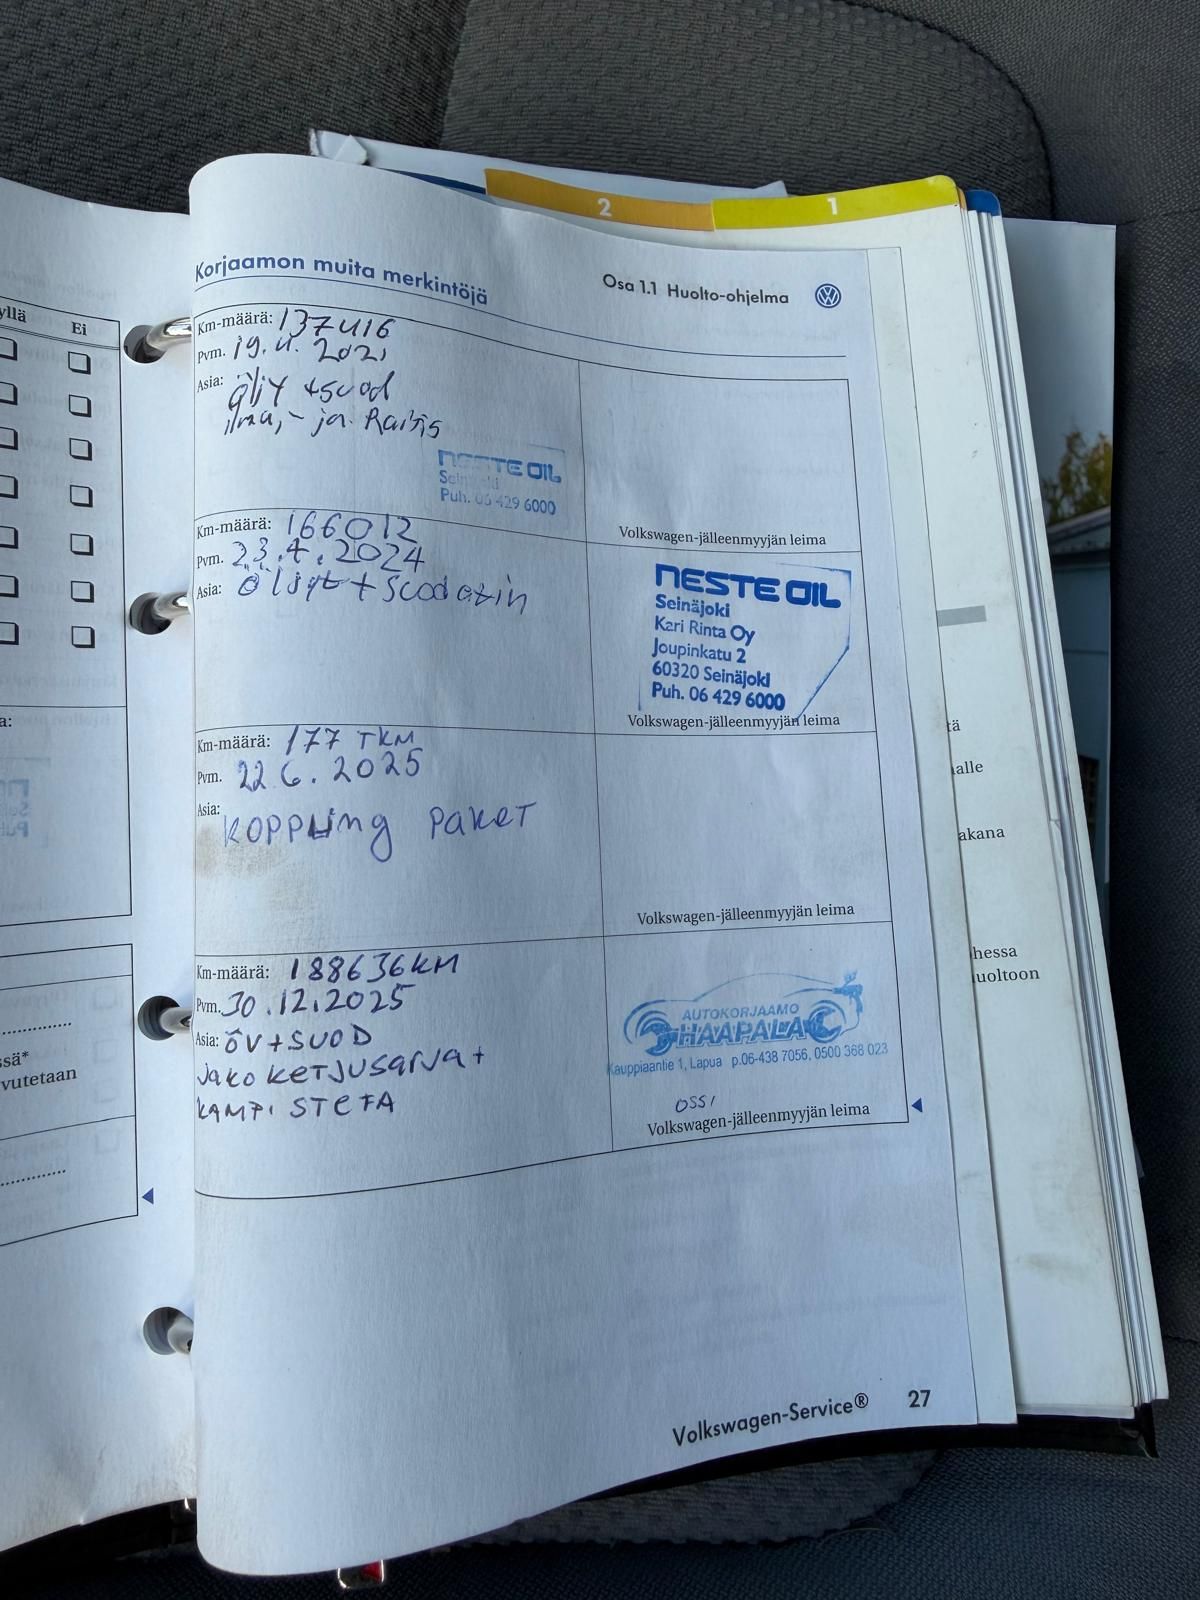 2
1
Korjaamon muita merkintöjä
Osa 1.1 Huolto-ohjelma
Km-määrä: 137416
Pvm. 19.4. 2021
Asia: öljy +suod
ilma,- ja Raitis
NESTE OIL
Seinäjoki
Puh. 06 429 6000
Volkswagen-jälleenmyyjän leima
Km-määrä: 166012
Pvm. 23.4.2024
Asia: öljyt + Suodatin
NESTE OIL
Seinäjoki
Kari Rinta Oy
Joupinkatu 2
60320 Seinäjoki
Puh. 06 429 6000
Volkswagen-jälleenmyyjän leima
Km-määrä: 177 TKM
Pvm. 22 6.2025
Asia:
KOPPLING PAKET
Volkswagen-jälleenmyyjän leima
Km-määrä: 188636KM
Pvm. 30.12.2025
Asia: ÖV+SUOD
JAKOKETJUSARJA+
KAMPI STEFA
AUTOKORJAAMO
HAAPALA
Kauppiaantie 1, Lapua p.06-438 7056, 0500 368 023
OSSI
Volkswagen-jälleenmyyjän leima
Volkswagen-Service® 27
yllä Ei
a:
ssä*
vutetaan
tä
alle
akana
hessa
uoltoon